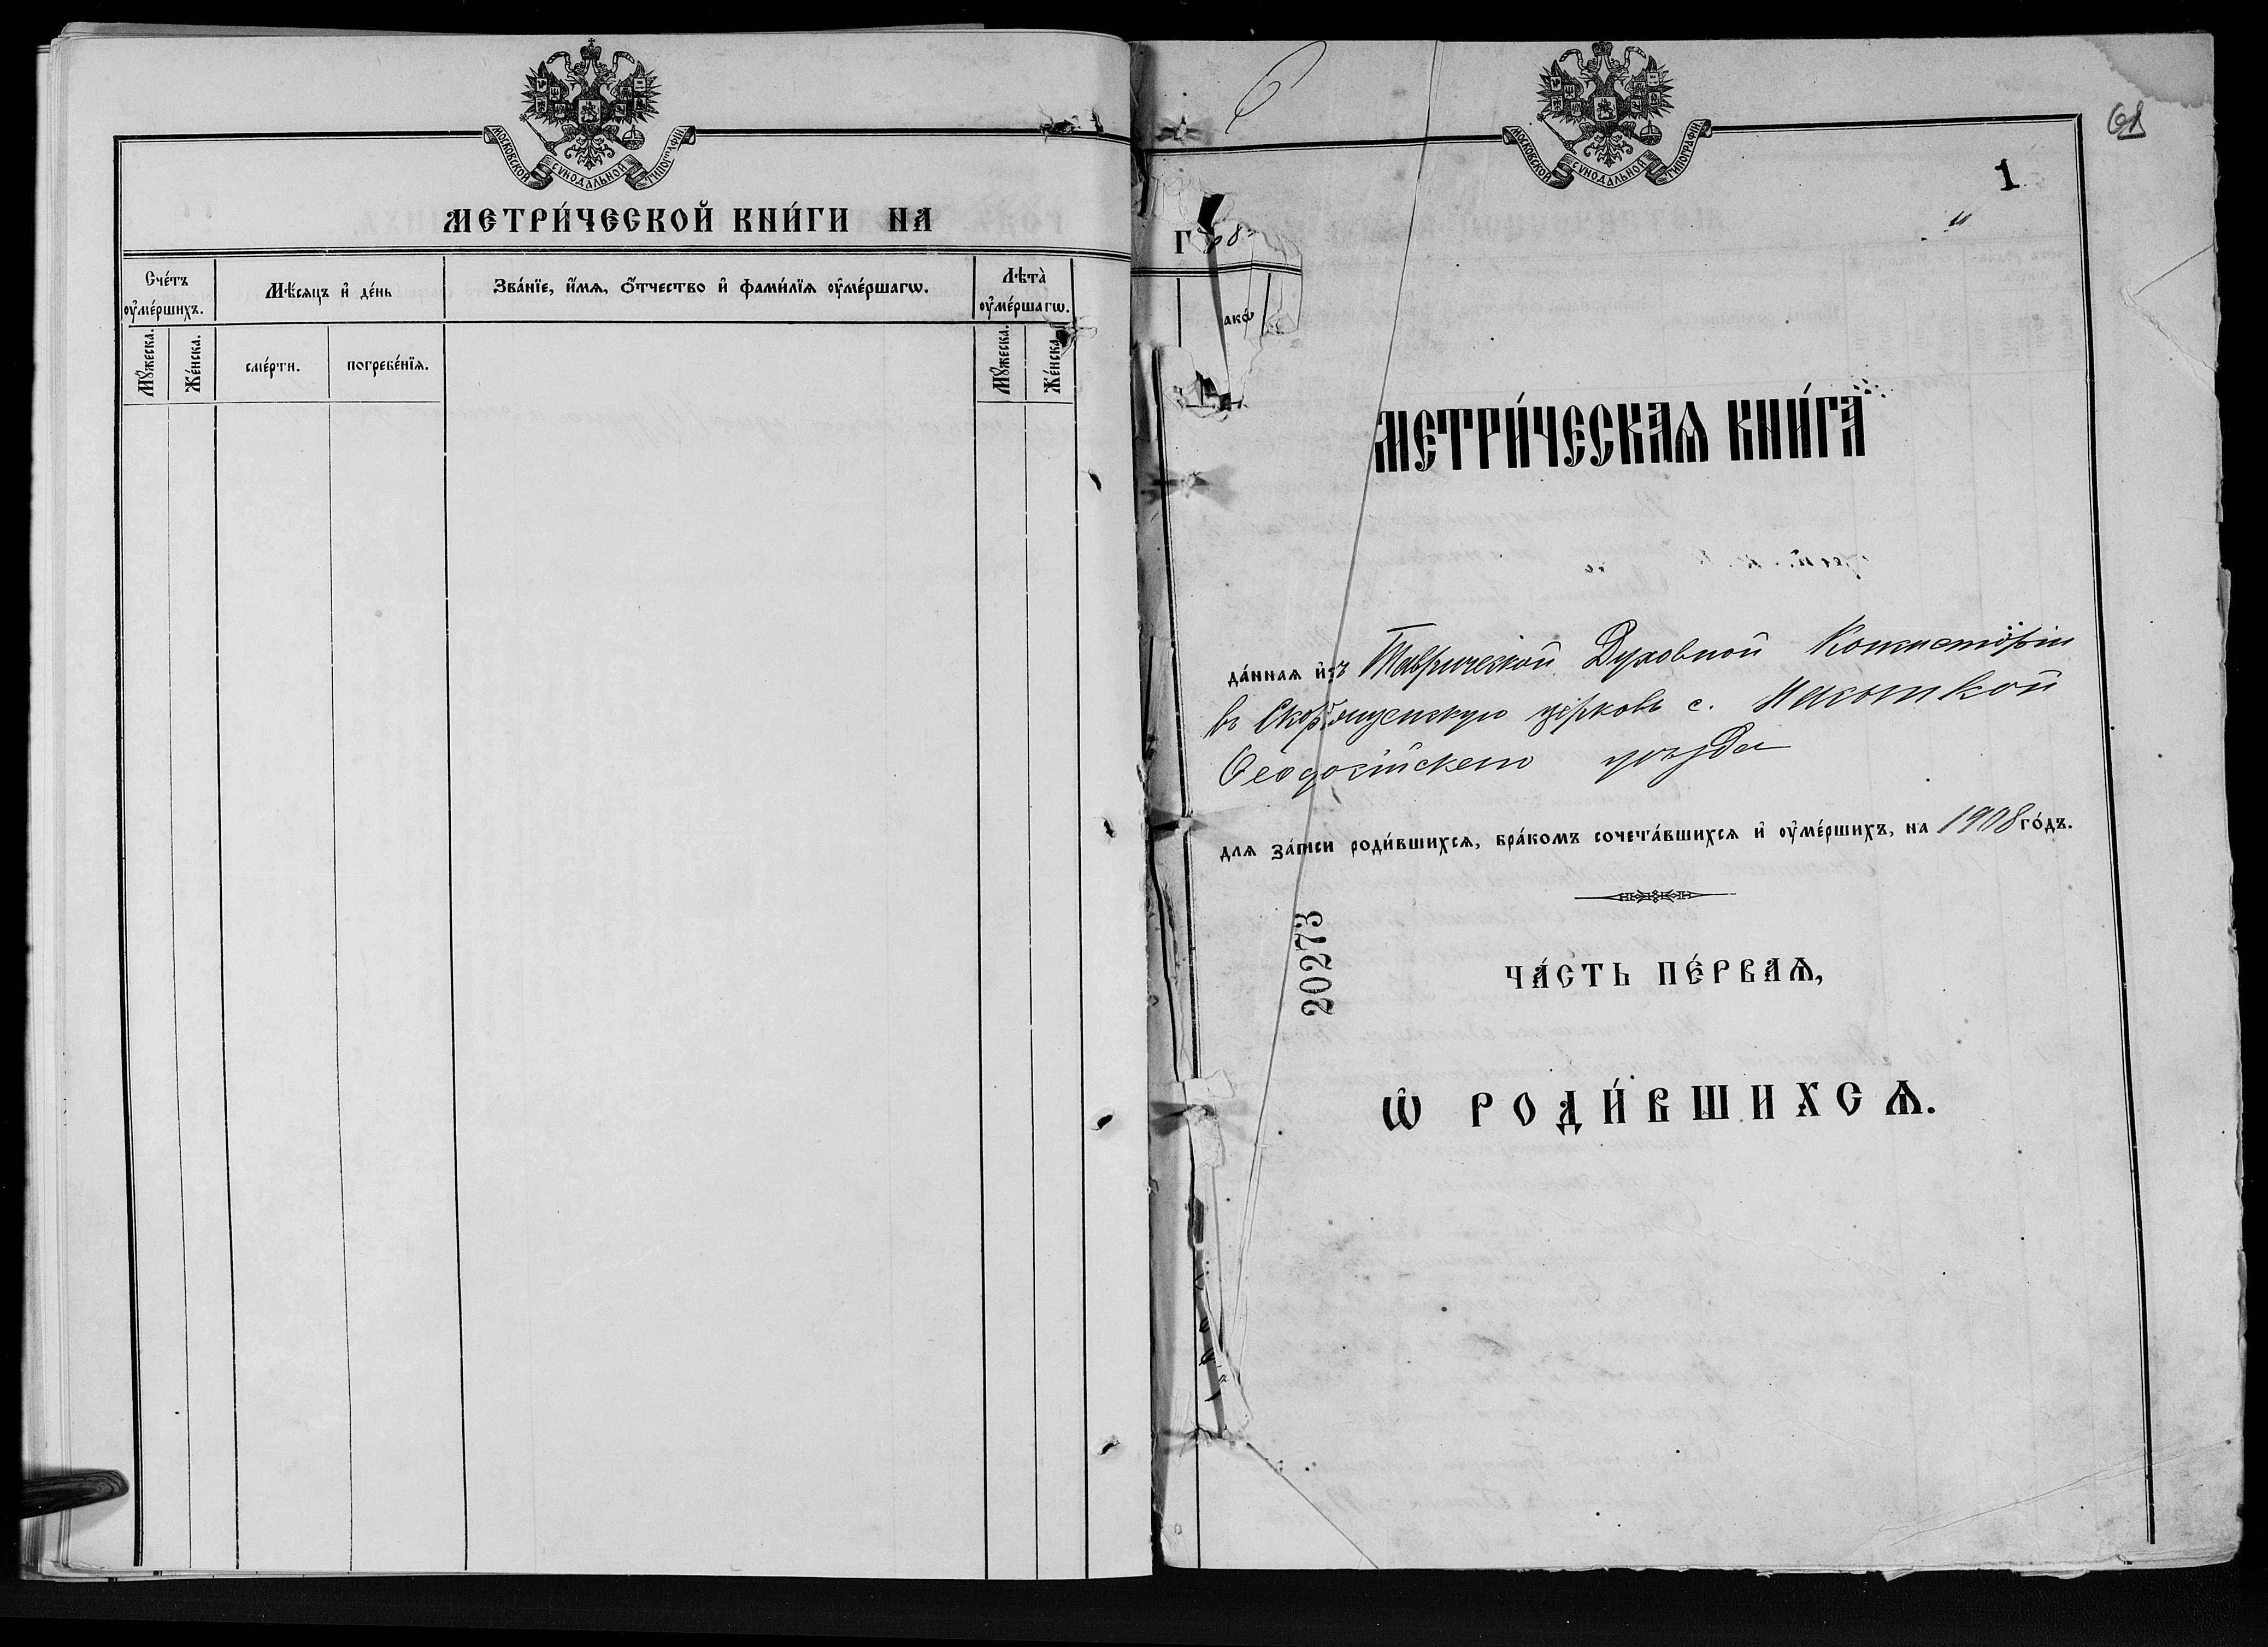 МОСКОВСКОЙ СѴНОДАЛЬНОЙ ТИПОГРАФІИ
МЕТРИ́ЧЕСКОЙ КНИ́ГИ НА
Сче́тъ ᲂу҆ме́ршихъ.
Мѣ́сяцъ и҆ де́нь
Зва́нїе, и҆́мѧ, ѻ҆́тчество и҆ фами́лїѧ ᲂу҆ме́ршагѡ.
Лѣта̀ ᲂу҆ме́ршагѡ.
Мꙋ́жеска.
Же́нска.
сме́рти.
погребе́нїѧ.
Мꙋ́жеска.
Же́нска
6
МОСКОВСКОЙ СѴНОДАЛЬНОЙ ТИПОГРАФІИ
61
1
Г
МЕТРИ́ЧЕСКАѦ КНИ́ГА
да́ннаѧ и҆зъ Таврической Духовной Консисторіи
въ церковь с.
Ѳеодосійскаго уѣзда
длѧ за́писи роди́вшихсѧ, бра́комъ сочета́вшихсѧ и҆ ᲂу҆ме́ршихъ, на 1908 го́дъ.
202273
ЧА́СТЬ ПЕ́РВАѦ,
Ѽ РОДИ́ВШИХСѦ.